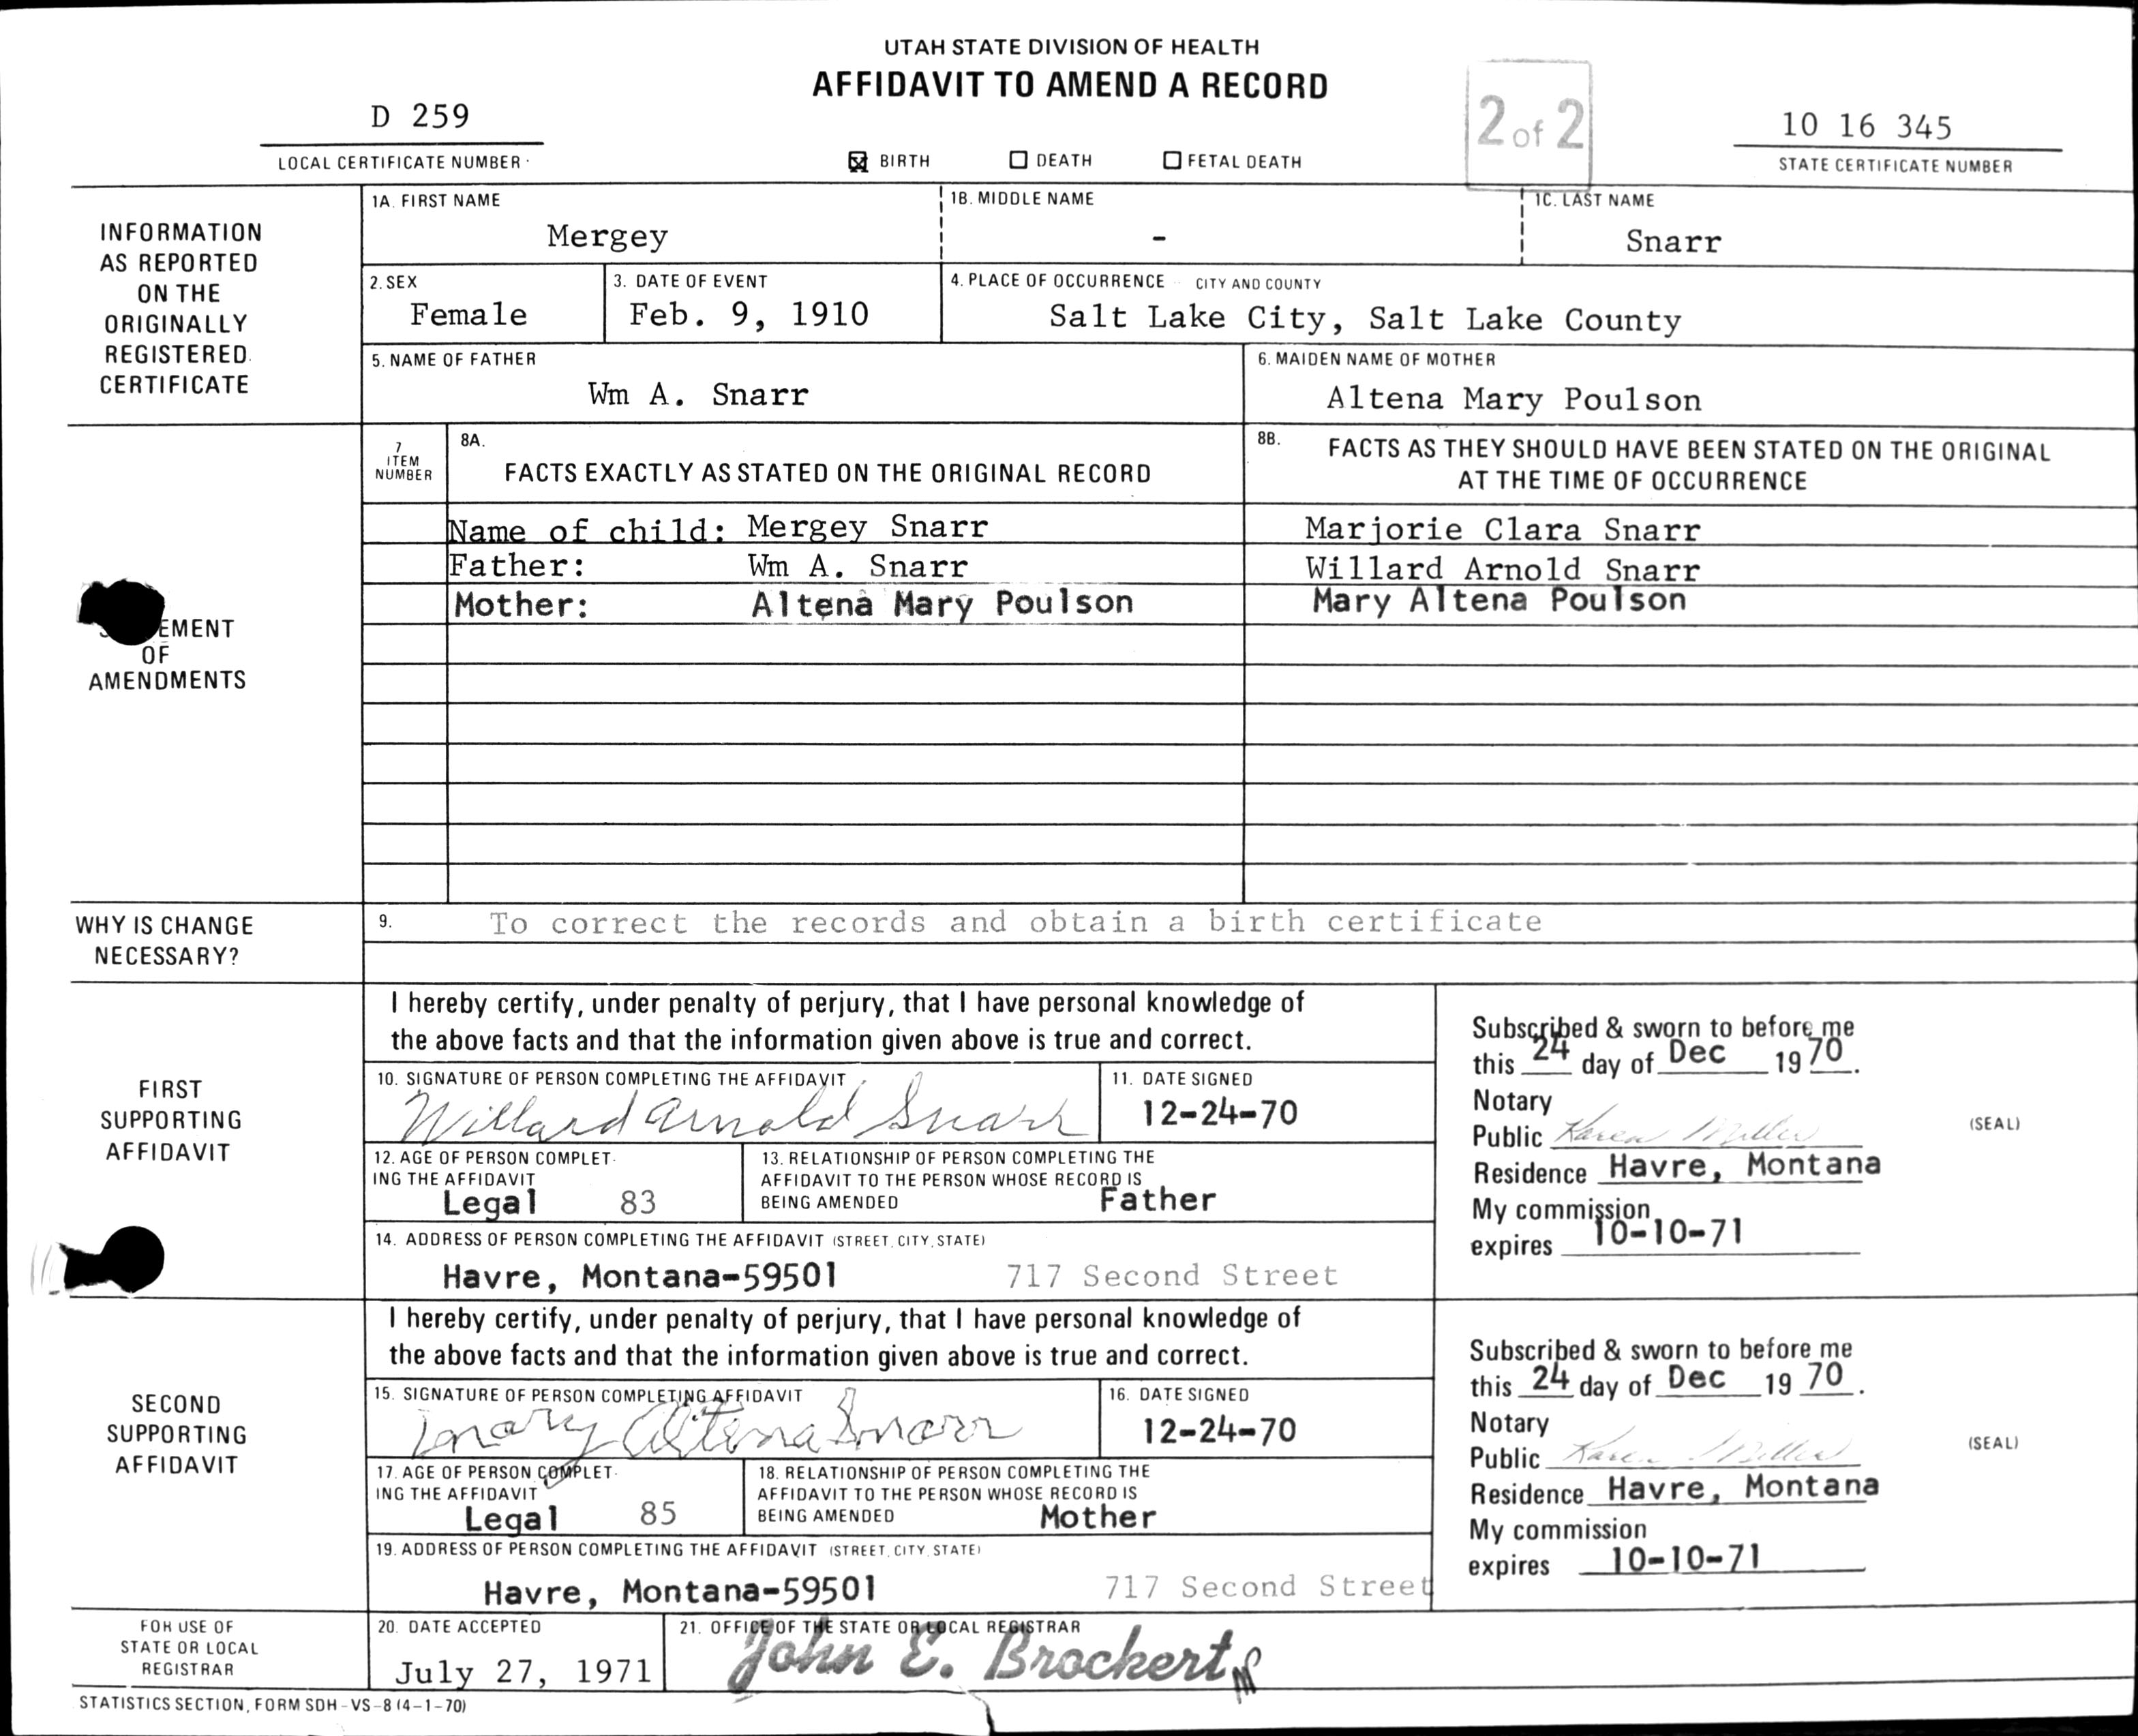 UTAH STATE DIVISION OF HEALTH
AFFIDAVIT TO AMEND A RECORD
D 259
LOCAL CERTIFICATE NUMBER
BIRTH DEATH FETAL DEATH
2 of 2
10 16 345
STATE CERTIFICATE NUMBER
INFORMATION
AS REPORTED
ON THE
ORIGINALLY
REGISTERED
CERTIFICATE
1A. FIRST NAME
Mergey
1B. MIDDLE NAME
-
1C. LAST NAME
Snarr
2. SEX
Female
3. DATE OF EVENT
Feb. 9, 1910
4. PLACE OF OCCURRENCE CITY AND COUNTY
Salt Lake City, Salt Lake County
5. NAME OF FATHER
Wm A. Snarr
6. MAIDEN NAME OF MOTHER
Altena Mary Poulson
EMENT
OF
AMENDMENTS
7
ITEM
NUMBER
8A.
FACTS EXACTLY AS STATED ON THE ORIGINAL RECORD
8B. FACTS AS THEY SHOULD HAVE BEEN STATED ON THE ORIGINAL
AT THE TIME OF OCCURRENCE
Name of child: Mergey Snarr Marjorie Clara Snarr
Father: Wm A. Snarr Willard Arnold Snarr
Mother: Altena Mary Poulson Mary Altena Poulson
WHY IS CHANGE
NECESSARY?
9. To correct the records and obtain a birth certificate
FIRST
SUPPORTING
AFFIDAVIT
I hereby certify, under penalty of perjury, that I have personal knowledge of
the above facts and that the information given above is true and correct.
10. SIGNATURE OF PERSON COMPLETING THE AFFIDAVIT
Willard Arnold Snarr
11. DATE SIGNED
12-24-70
12. AGE OF PERSON COMPLET-
ING THE AFFIDAVIT
Legal 83
13. RELATIONSHIP OF PERSON COMPLETING THE
AFFIDAVIT TO THE PERSON WHOSE RECORD IS
BEING AMENDED Father
14. ADDRESS OF PERSON COMPLETING THE AFFIDAVIT (STREET, CITY, STATE)
Havre, Montana-59501 717 Second Street
Subscribed & sworn to before me
this 24 day of Dec 19 70.
Notary
Public Karen Miller
(SEAL)
Residence Havre, Montana
My commission
expires 10-10-71
SECOND
SUPPORTING
AFFIDAVIT
I hereby certify, under penalty of perjury, that I have personal knowledge of
the above facts and that the information given above is true and correct.
15. SIGNATURE OF PERSON COMPLETING AFFIDAVIT
Mary Altena Snarr
16. DATE SIGNED
12-24-70
17. AGE OF PERSON COMPLET-
ING THE AFFIDAVIT
Legal 85
18. RELATIONSHIP OF PERSON COMPLETING THE
AFFIDAVIT TO THE PERSON WHOSE RECORD IS
BEING AMENDED Mother
19. ADDRESS OF PERSON COMPLETING THE AFFIDAVIT (STREET, CITY, STATE)
Havre, Montana-59501 717 Second Street
Subscribed & sworn to before me
this 24 day of Dec 19 70.
Notary
Public Karen Miller
(SEAL)
Residence Havre, Montana
My commission
expires 10-10-71
FOR USE OF
STATE OR LOCAL
REGISTRAR
20. DATE ACCEPTED
July 27, 1971
21. OFFICE OF THE STATE OR LOCAL REGISTRAR
John E. Brockert
STATISTICS SECTION, FORM SDH-VS-8 (4-1-70)